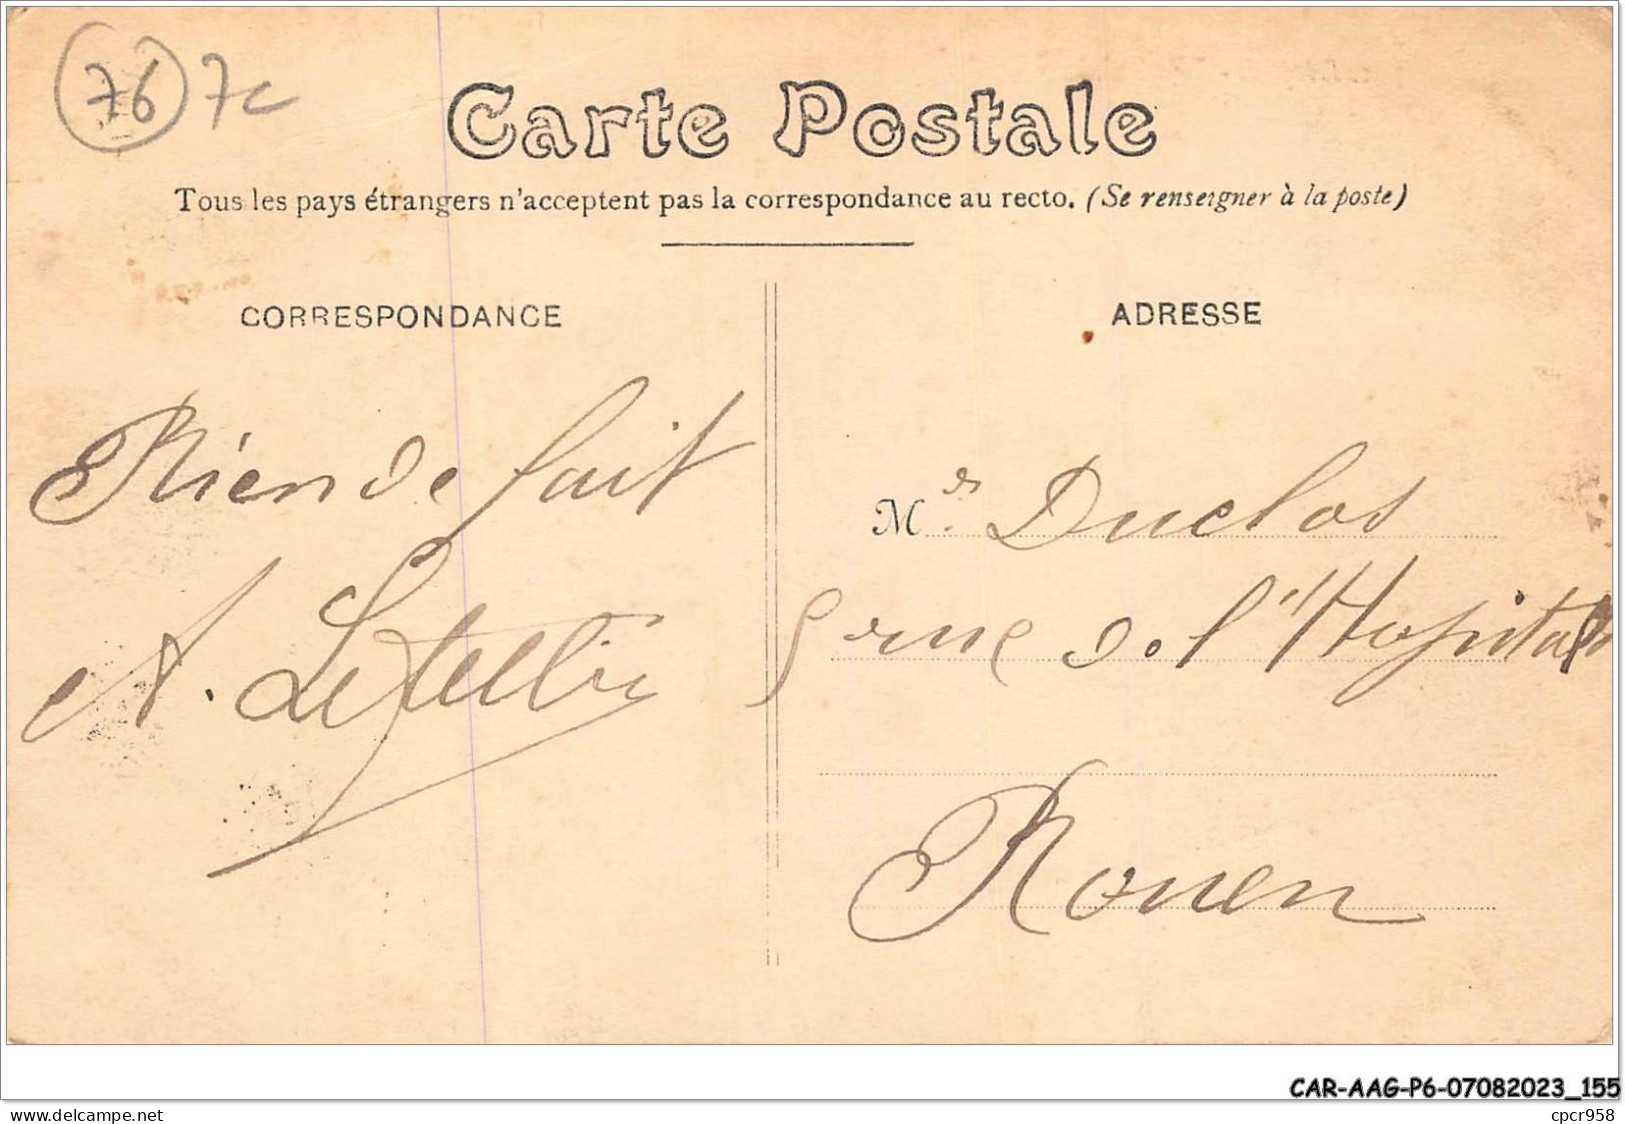 76 7c
Carte Postale
Tous les pays étrangers n'acceptent pas la correspondance au recto. (Se renseigner à la poste)
CORRESPONDANCE
Rien de fait
A. Letellier
ADRESSE
M. Duclos
rue de l'Hopital
Rouen
CAR-AAG-P6-07082023_155
www.delcampe.net
cpcr958